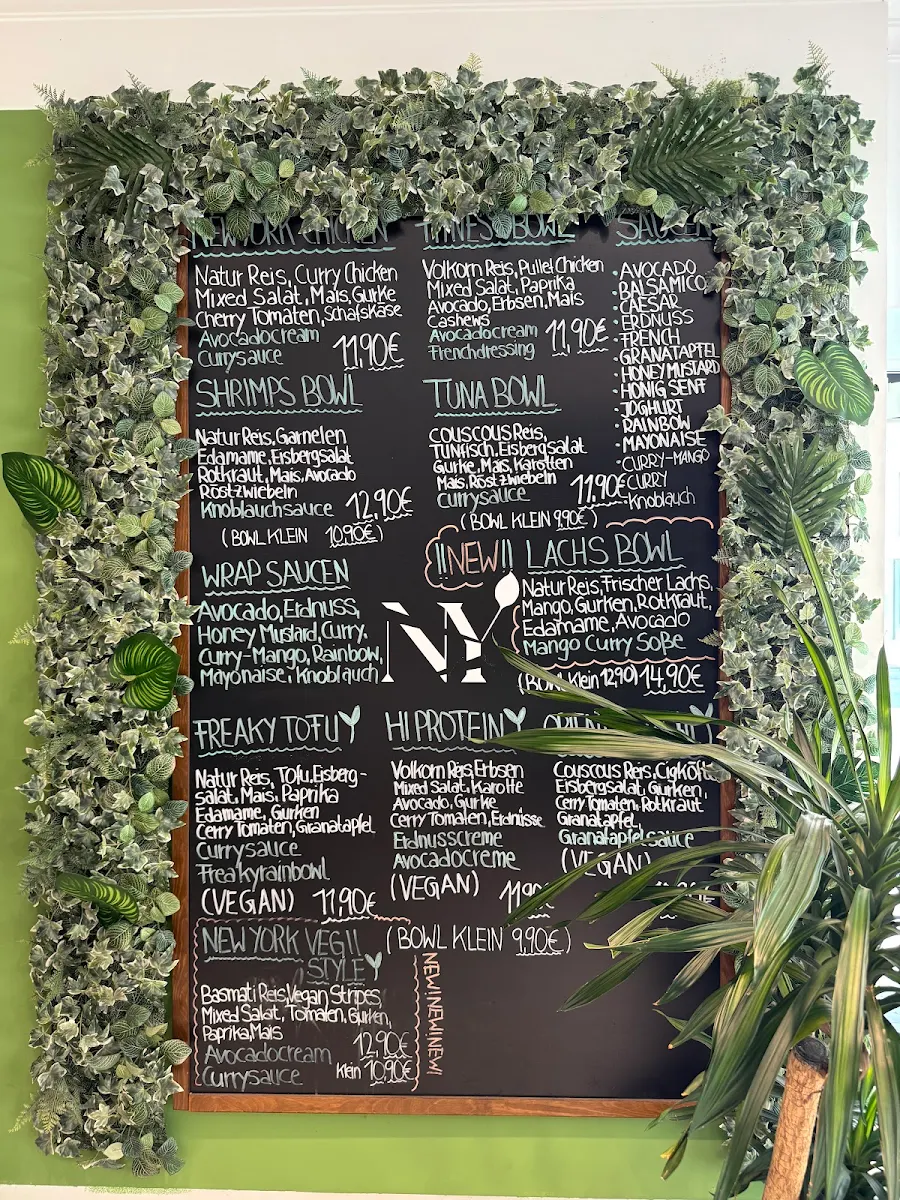 NEW YORK CHICKEN
Natur Reis, Curry Chicken
Mixed Salat, Mais, Gurke
Cherry Tomaten, Schafskäse
Avocadocream
Currysauce
11,90€
FITNESS BOWL
Volkorn Reis, Pulled Chicken
Mixed Salat, Paprika
Avocado, Erbsen, Mais
Cashews
Avocadocream
Frenchdressing
11,90€
SAUCEN
• AVOCADO
• BALSAMICO
• CAESAR
• ERDNUSS
• FRENCH
• GRANATAPFEL
• HONEY MUSTARD
• HONIG SENF
• JOGHURT
• RAINBOW
• MAYONAISE
• CURRY-MANGO
• CURRY
• Knoblauch
SHRIMPS BOWL
Natur Reis, Garnelen
Edamame, Eisbergsalat
Rotkraut, Mais, Avocado
Röstzwiebeln
Knoblauchsauce 12,90€
(BOWL KLEIN 10,90€)
TUNA BOWL
COUSCOUS Reis,
TUNfisch, Eisbergsalat
Gurke, Mais, Karotten
Mais, Röstzwiebeln
Currysauce 11,90€
(BOWL KLEIN 9,90€)
WRAP SAUCEN
Avocado, Erdnuss,
Honey Mustard, Curry,
Curry-Mango, Rainbow,
Mayonaise, Knoblauch
NY
!!NEW!! LACHS BOWL
Natur Reis, Frischer Lachs,
Mango, Gurken, Rotkraut,
Edamame, Avocado
Mango Curry Soße
(BOWL Klein 12,90) 14,90€
FREAKY TOFU
Natur Reis, Tofu, Eisberg-
salat, Mais, Paprika
Edamame, Gurken
Cerry Tomaten, Granatapfel
Currysauce
Freakyrainbowl
(VEGAN) 11,90€
HI PROTEIN
Volkorn Reis, Erbsen
Mixed Salat, Karotte
Avocado, Gurke
Cerry Tomaten, Erdnüsse
Erdnusscreme
Avocadocreme
(VEGAN) 11,90
Couscous Reis, Cigköfte
Eisbergsalat, Gurken,
Cerry Tomaten, Rotkraut
Granatapfel,
Granatapfelsauce
(VEGAN)
(BOWL KLEIN 9,90€)
NEW YORK VEG!!
STYLE
Basmati Reis, Vegan Stripes,
Mixed Salat, Tomaten, Gurken,
Paprika, Mais
Avocadocream 12,90€
Currysauce Klein 10,90€
NEW!NEW!NEW!